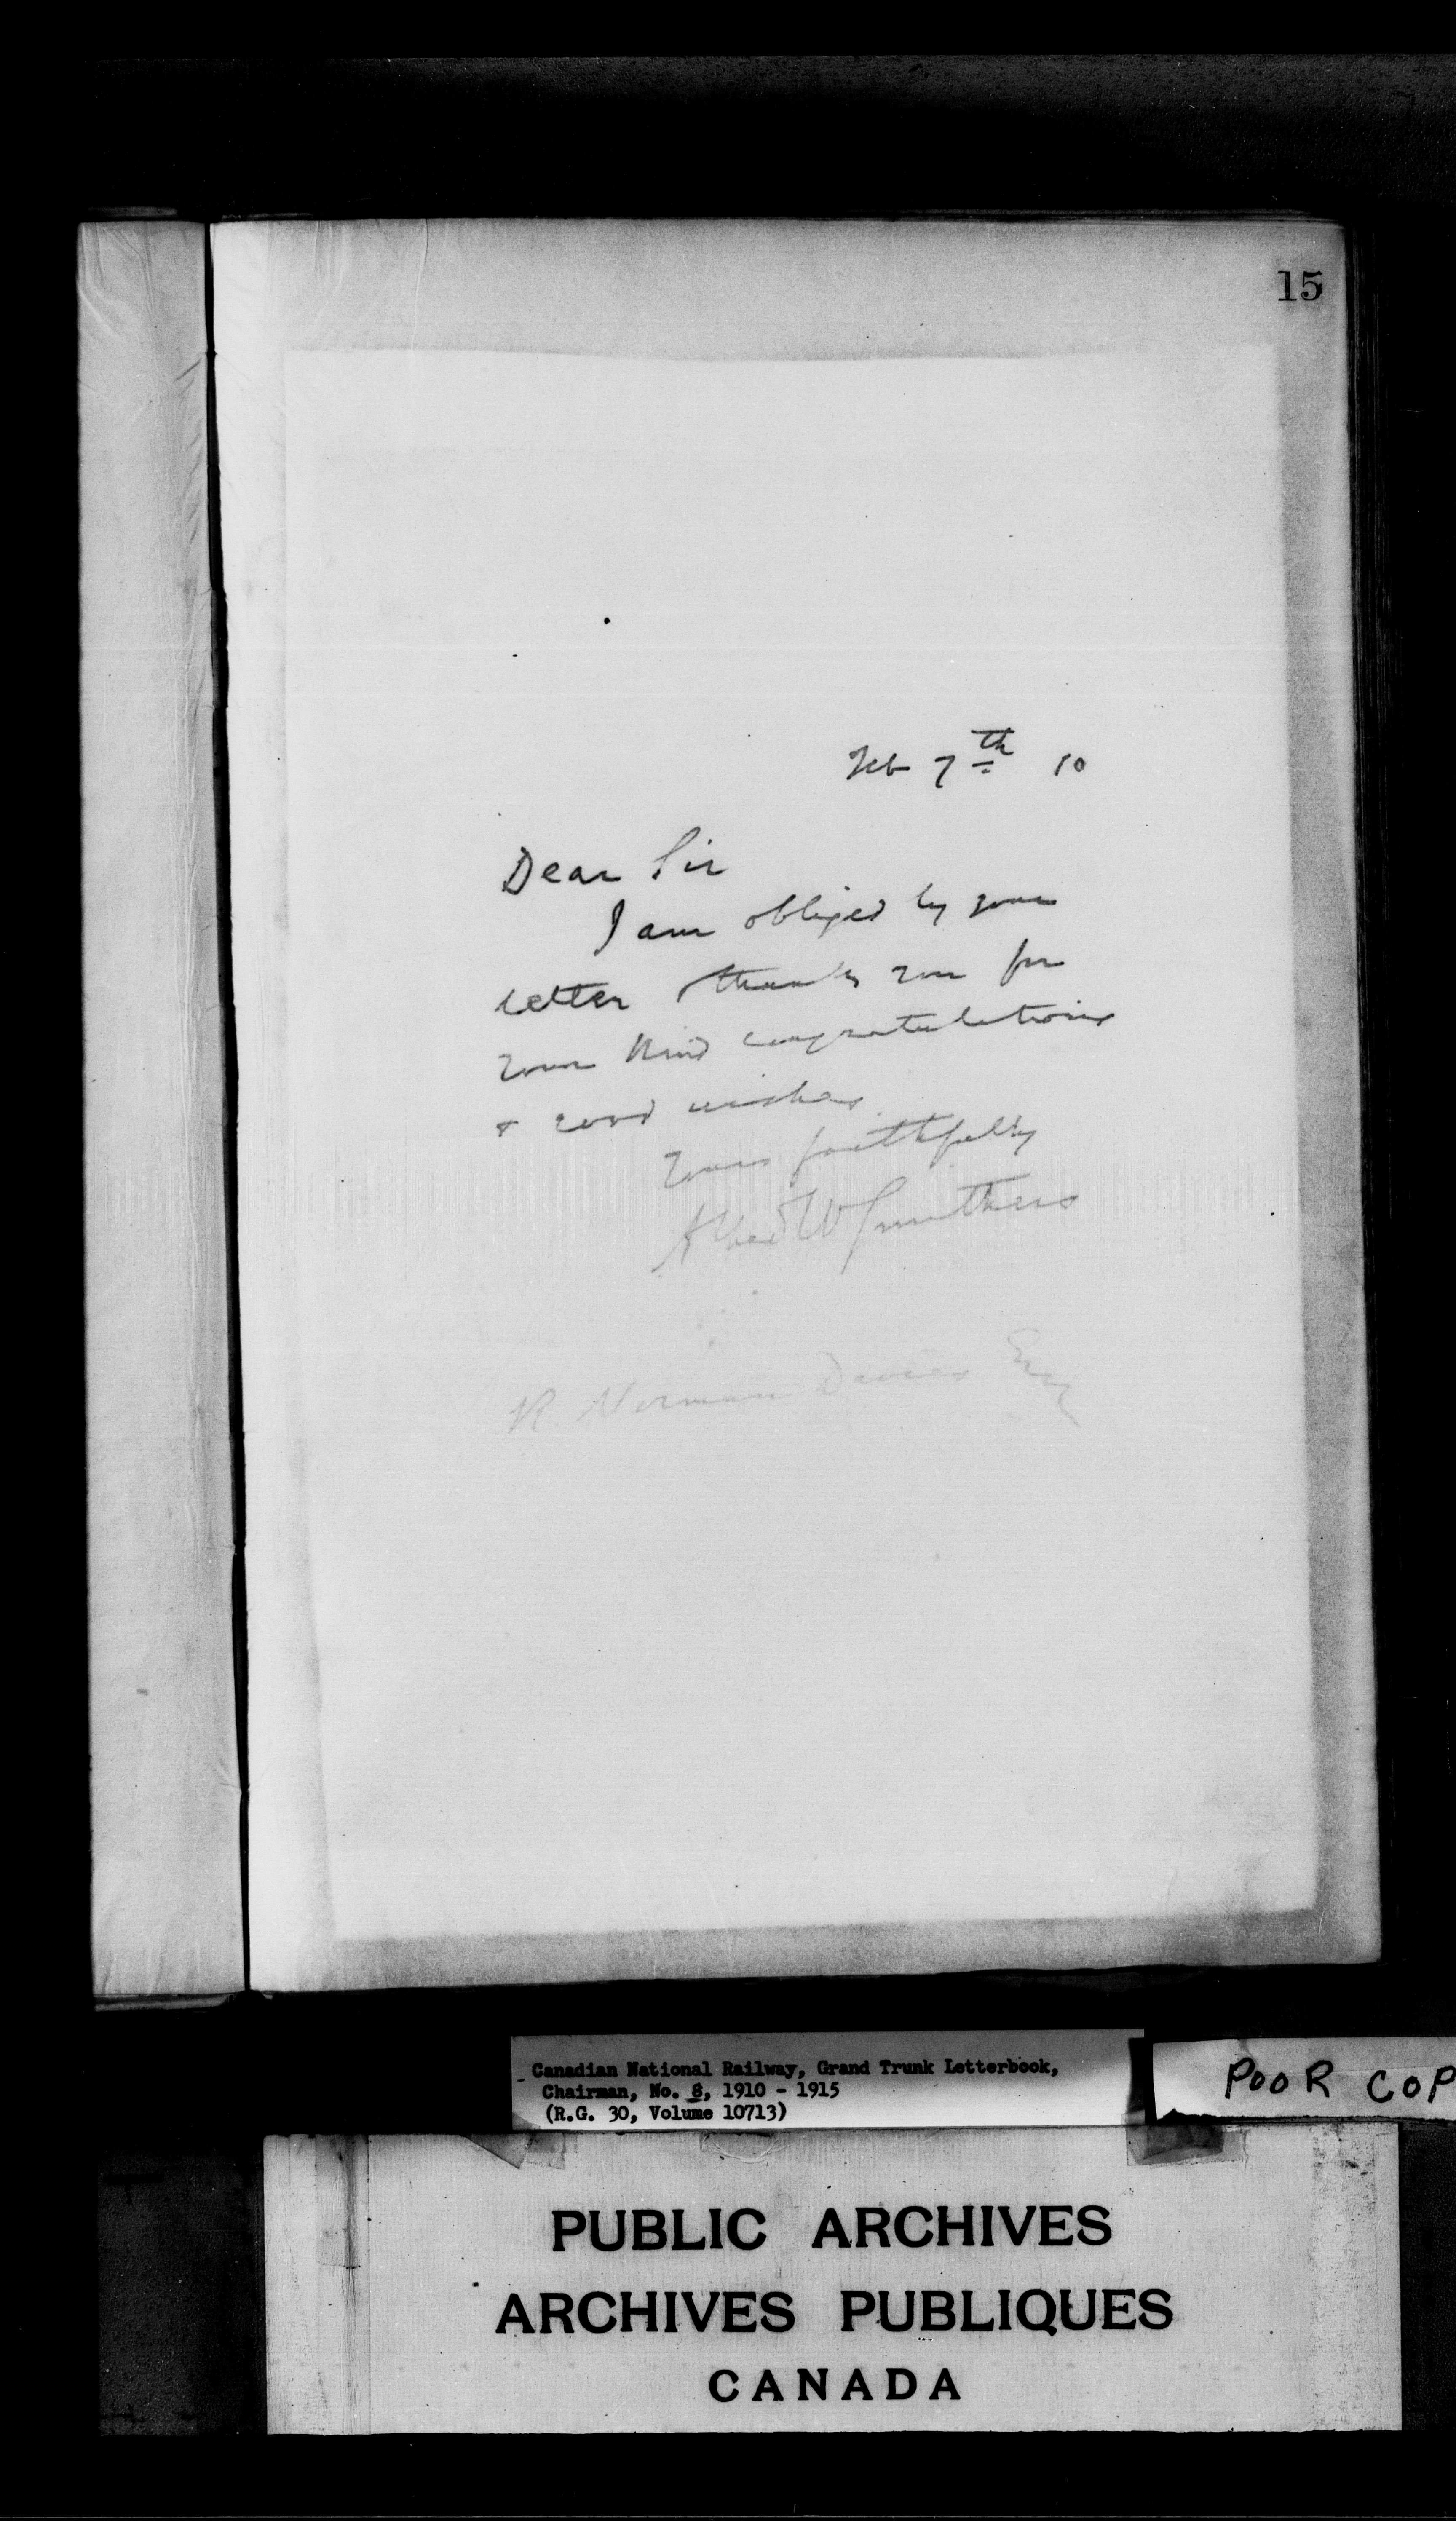 15
Feb 7th 10
Dear Sir
I am obliged by your
letter & thank you for
your kind congratulations
& good wishes
Yours faithfully
Alfred W Smithers
R. Norman Davies Esq
Canadian National Railway, Grand Trunk Letterbook,
Chairman, No. 8, 1910 - 1915
(R.G. 30, Volume 10713)
POOR COP
PUBLIC ARCHIVES
ARCHIVES PUBLIQUES
CANADA